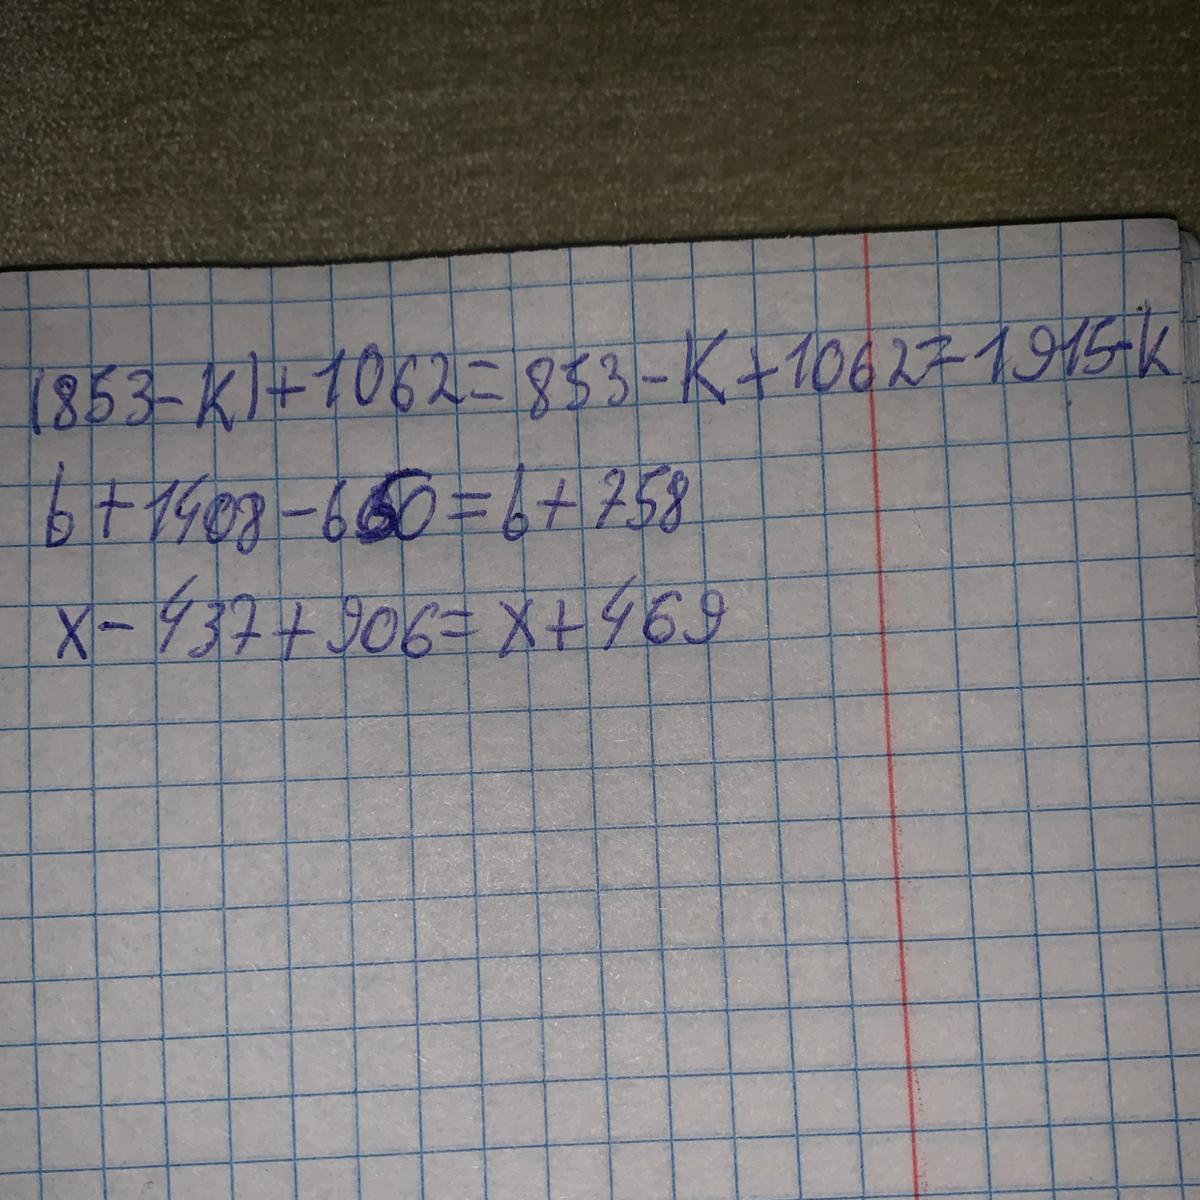 (853-k)+1062=853-k+1062=1915-k
b+1408-650=b+758
x-437+906=x+469